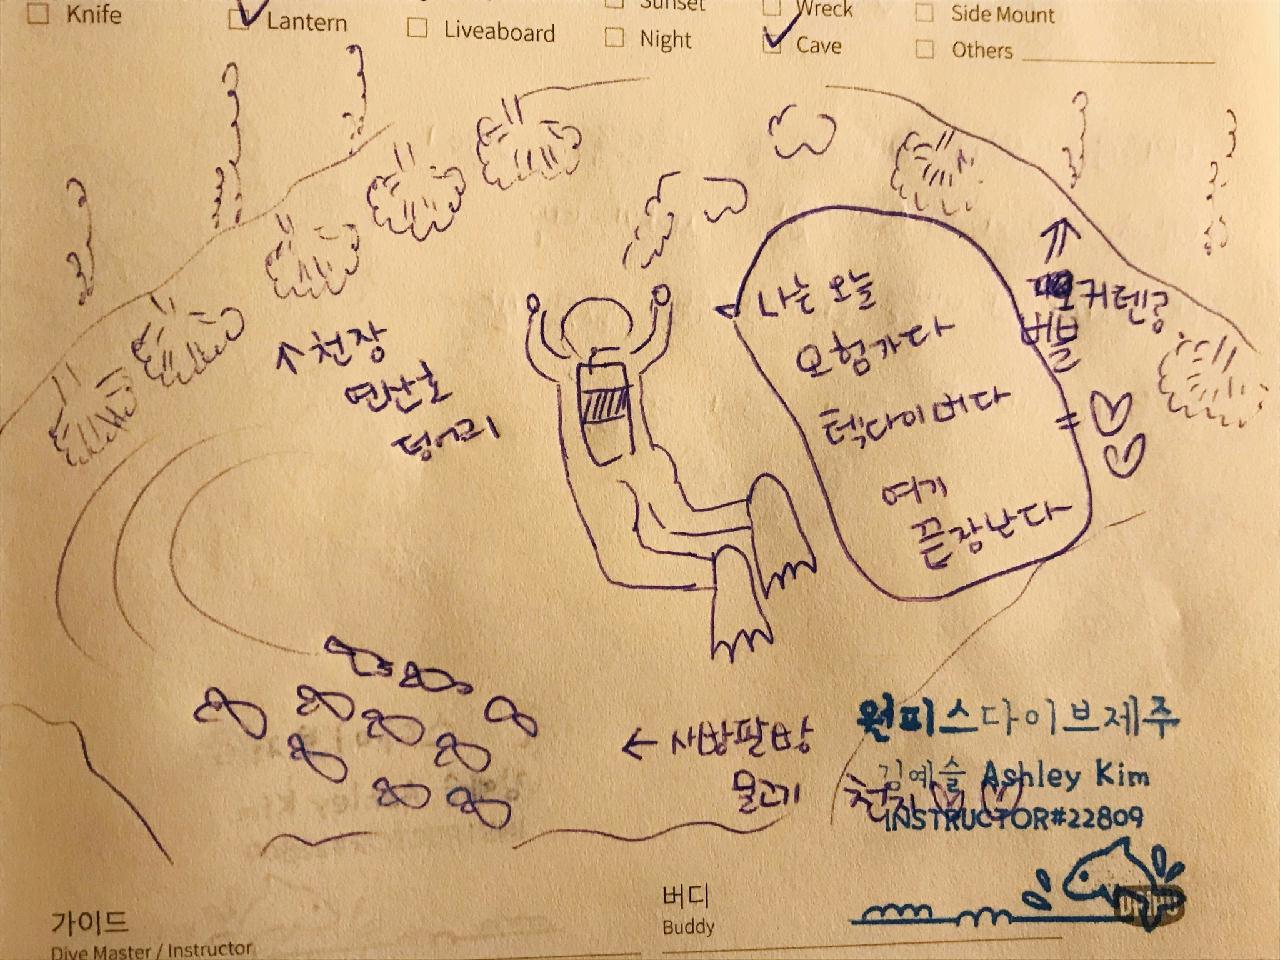 Knife
Lantern
Liveaboard
Sunset
Night
Wreck
Cave
Side Mount
Others
↑ 천장
연산호
덩어리
나는 오늘
모험가다
텍다이버다
여기
끝장난다
커텐링
버블
= ♡
♡
← 사방팔방
물고기 천지 ♡ ♡
원피스다이브제주
김예슬 Ashley Kim
INSTRUCTOR#22809
가이드
Dive Master / Instructor
버디
Buddy